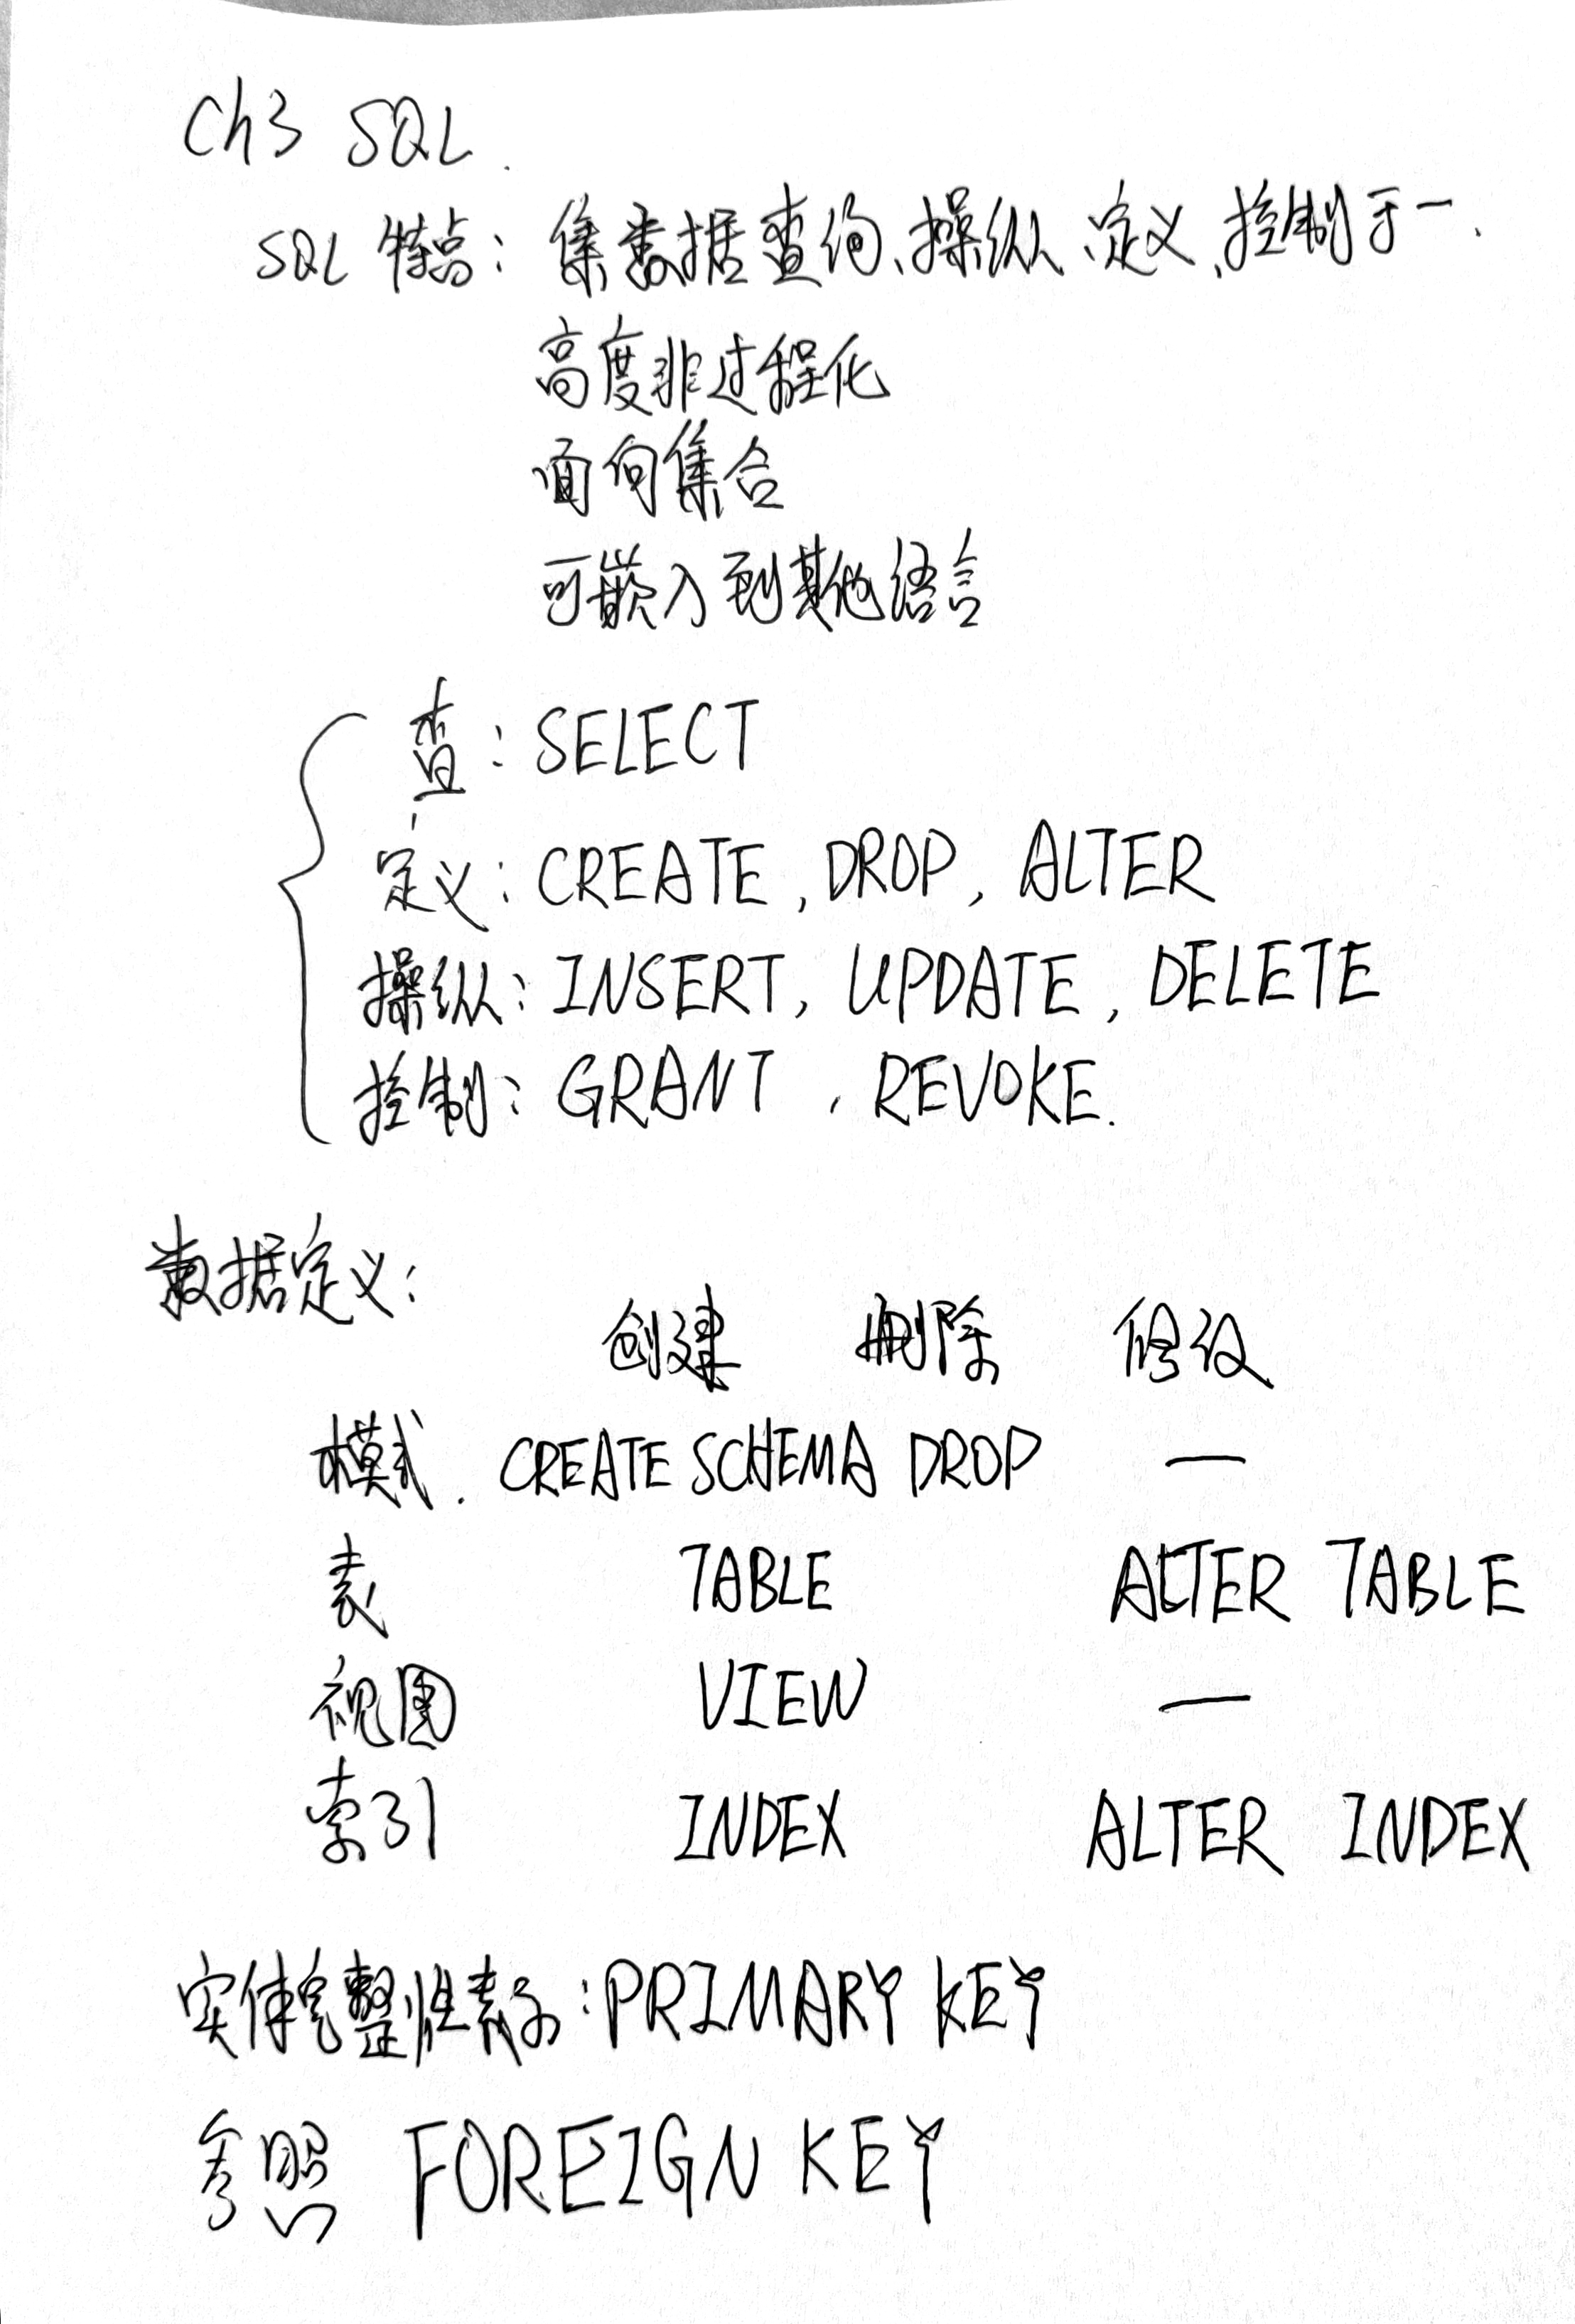 Ch3 SQL.
SQL 特点：集数据查询、操纵、定义、控制于一.
高度非过程化
面向集合
可嵌入到其他语言
查：SELECT
定义：CREATE, DROP, ALTER
操纵：INSERT, UPDATE, DELETE
控制：GRANT, REVOKE.
数据定义：
创建 删除 修改
模式. CREATE SCHEMA DROP —
表 TABLE ALTER TABLE
视图 VIEW —
索引 INDEX ALTER INDEX
实体完整性表示：PRIMARY KEY
参照 FOREIGN KEY